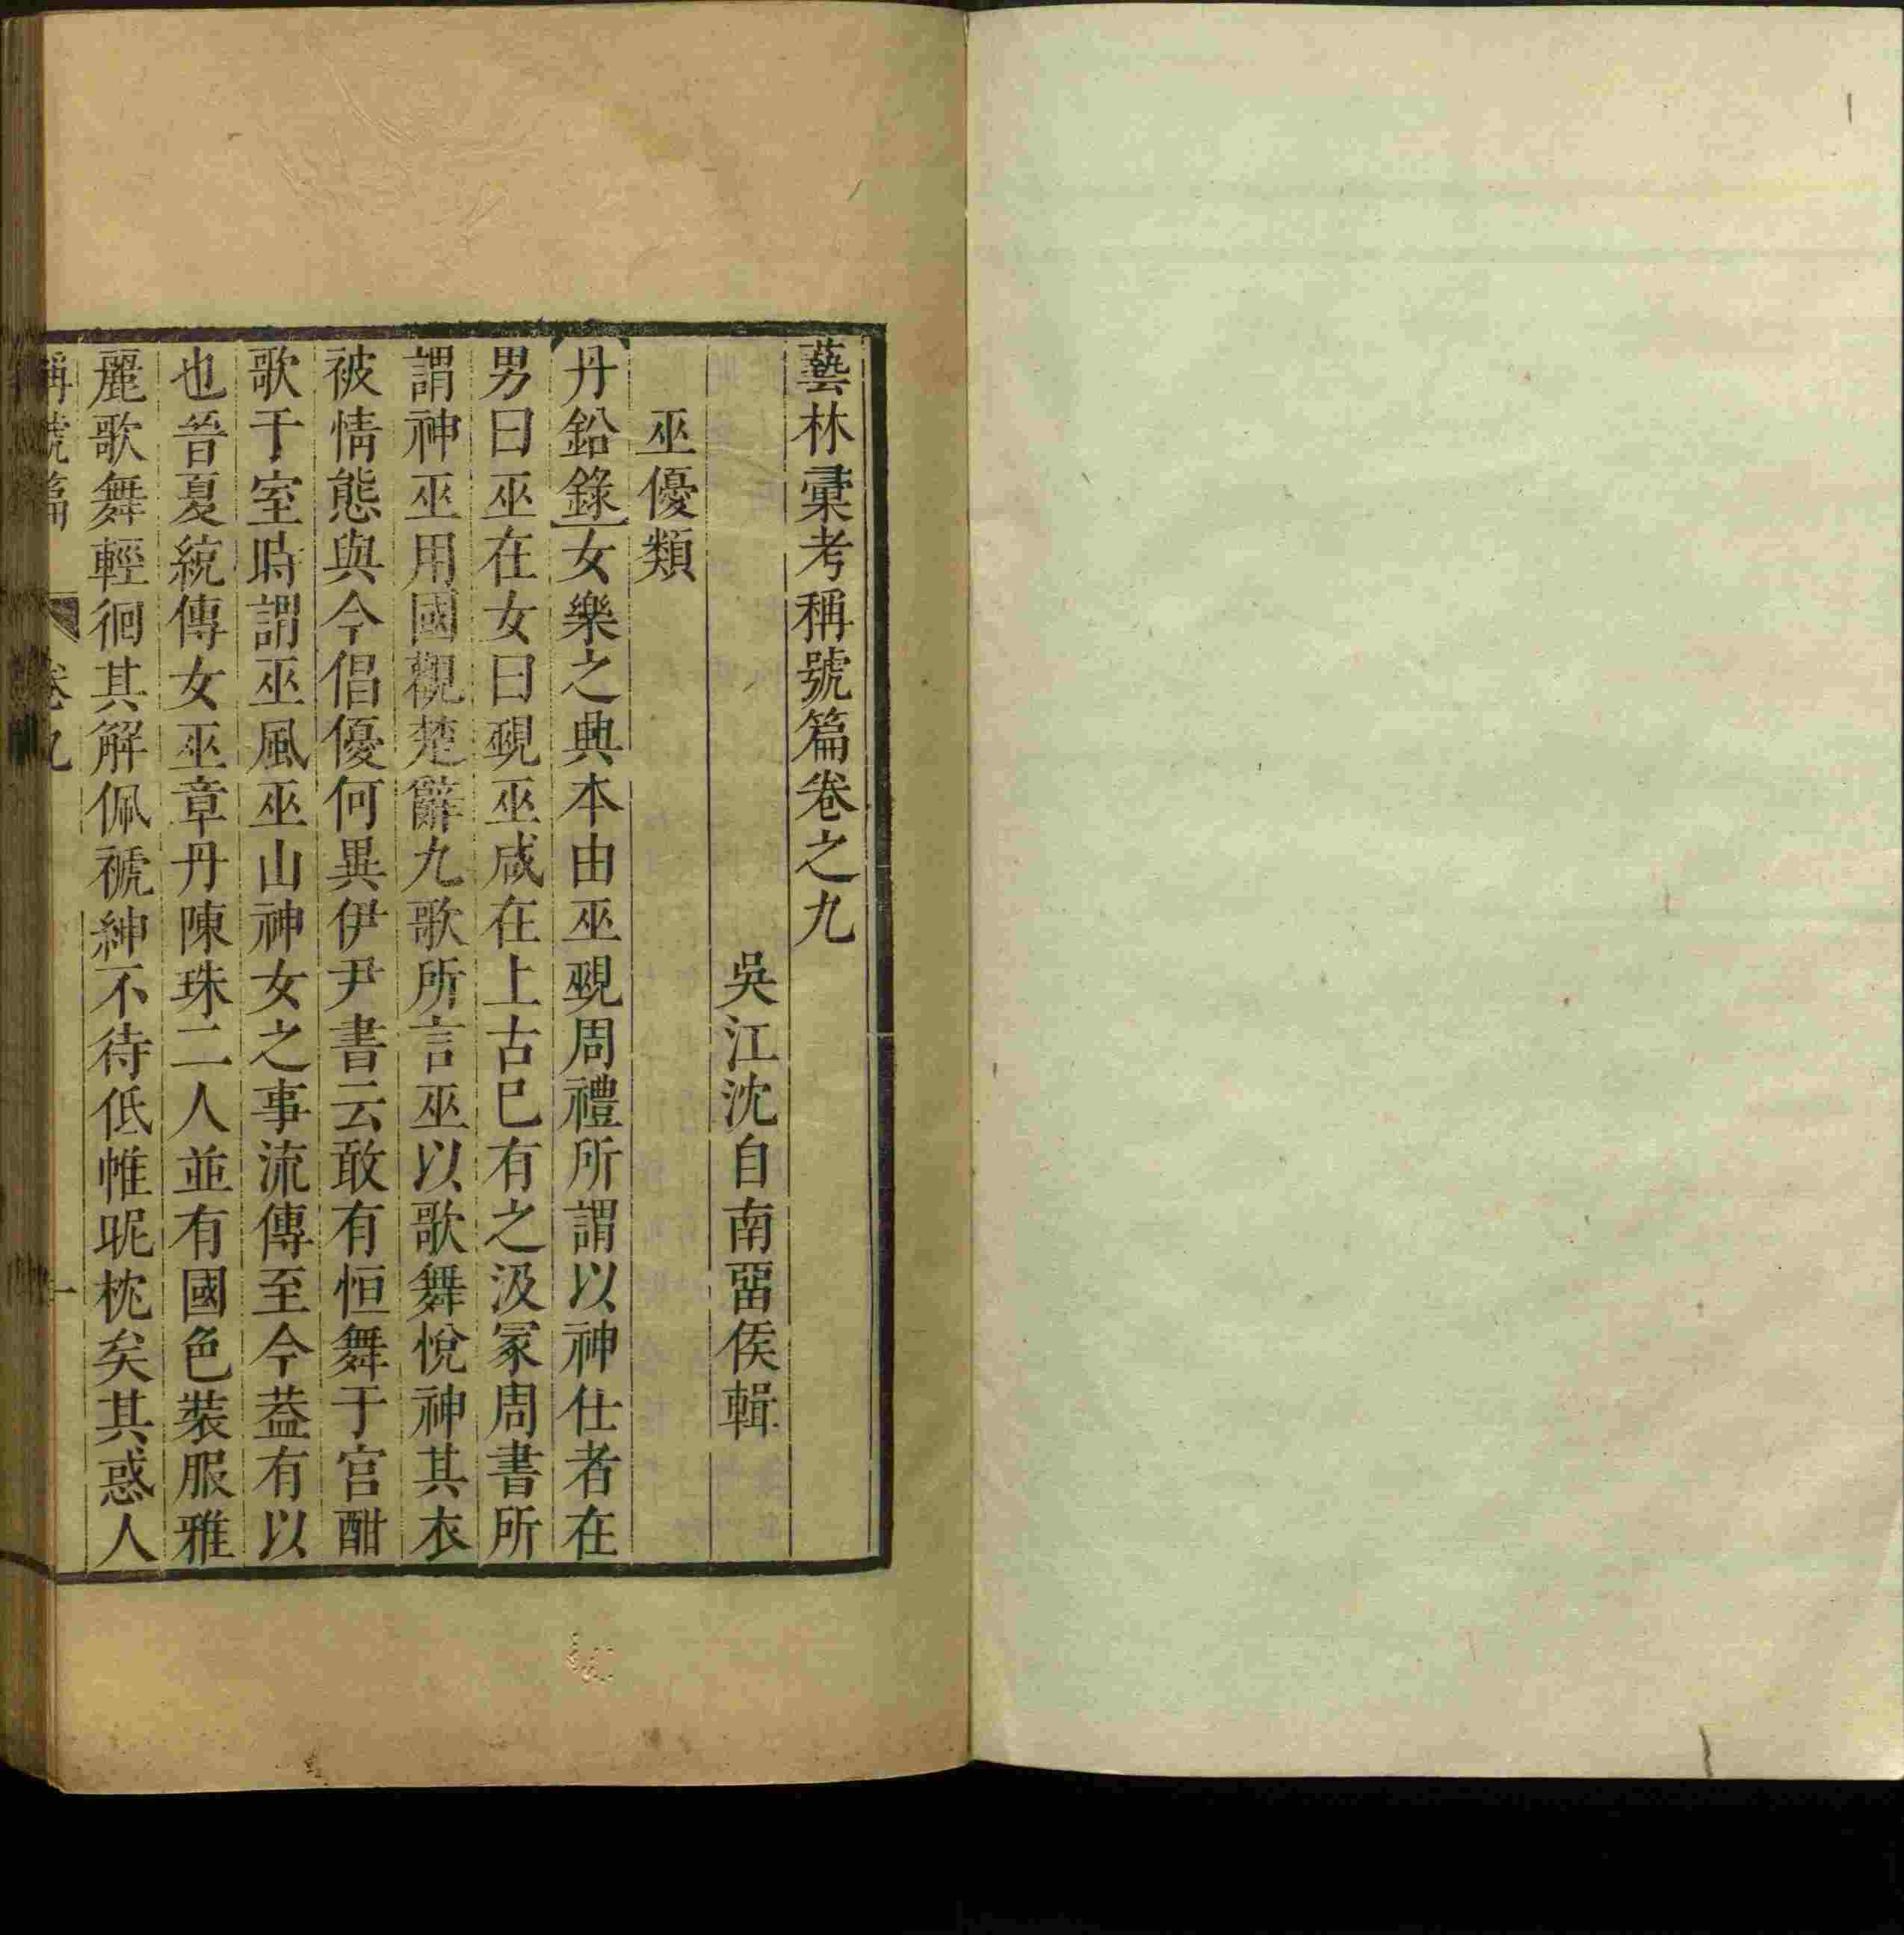 藝林彚考稱號篇卷之九
吳江沈自南畱侯輯
巫優類
丹鉛錄女樂之典本由巫覡周禮所謂以神仕者在
男曰巫在女曰覡巫咸在上古已有之汲冢周書所
謂神巫用國觀楚辭九歌所言巫以歌舞悅神其衣
被情態與今倡優何異伊尹書云敢有恒舞于宮酣
歌于室時謂巫風巫山神女之事流傳至今葢有以
也晉夏統傳女巫章丹陳珠二人並有國色裝服雅
麗歌舞輕徊其解佩褫紳不待低帷昵枕矣其惑人
稱號篇 卷九 一